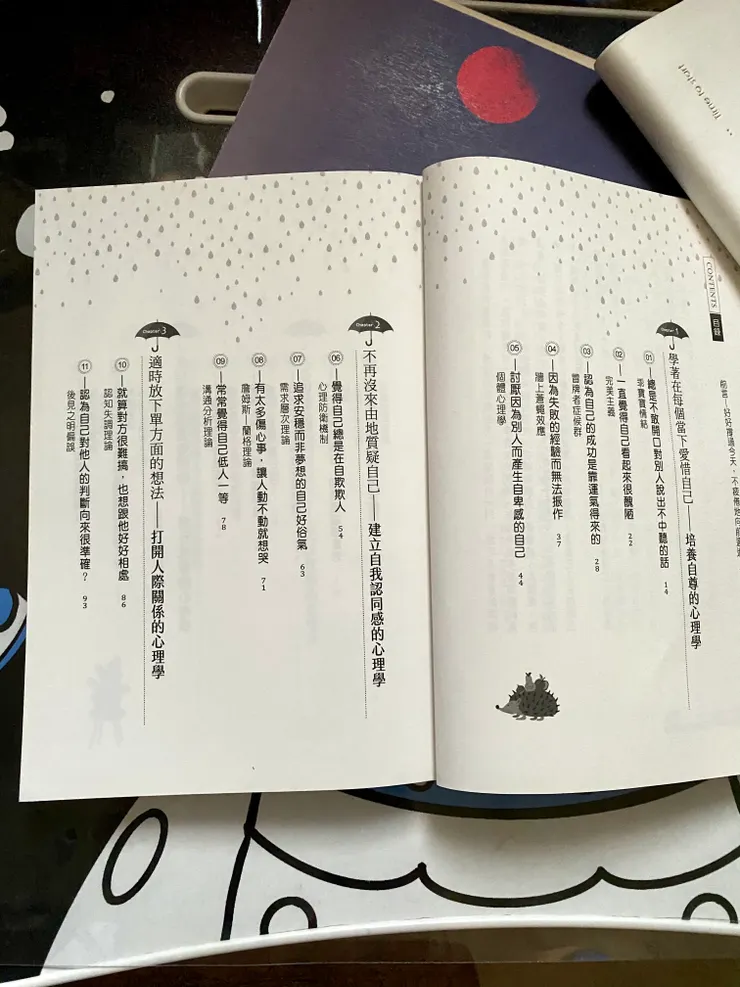 CONTENTS 目錄
前言—好好撐過今天，不疲倦地向前邁進
Chapter 1
學著在每個當下愛惜自己——培養自尊的心理學
01——總是不敢開口對別人說出不中聽的話 14
乖寶寶情結
02——一直覺得自己看起來很醜陋 22
完美主義
03——認為自己的成功是靠運氣得來的 28
冒牌者症候群
04——因為失敗的經驗而無法振作 37
牆上蒼蠅效應
05——討厭因為別人而產生自卑感的自己 44
個體心理學
Chapter 2
不再沒來由地質疑自己——建立自我認同感的心理學
06——覺得自己總是在自欺欺人 54
心理防衛機制
07——追求安穩而非夢想的自己好俗氣 63
需求層次理論
08——有太多傷心事，讓人動不動就想哭 71
詹姆斯－蘭格理論
09——常常覺得自己低人一等 78
溝通分析理論
Chapter 3
適時放下單方面的想法——打開人際關係的心理學
10——就算對方很難搞，也想跟他好好相處 86
認知失調理論
11——認為自己對他人的判斷向來很準確？ 93
後見之明偏誤
Time to start